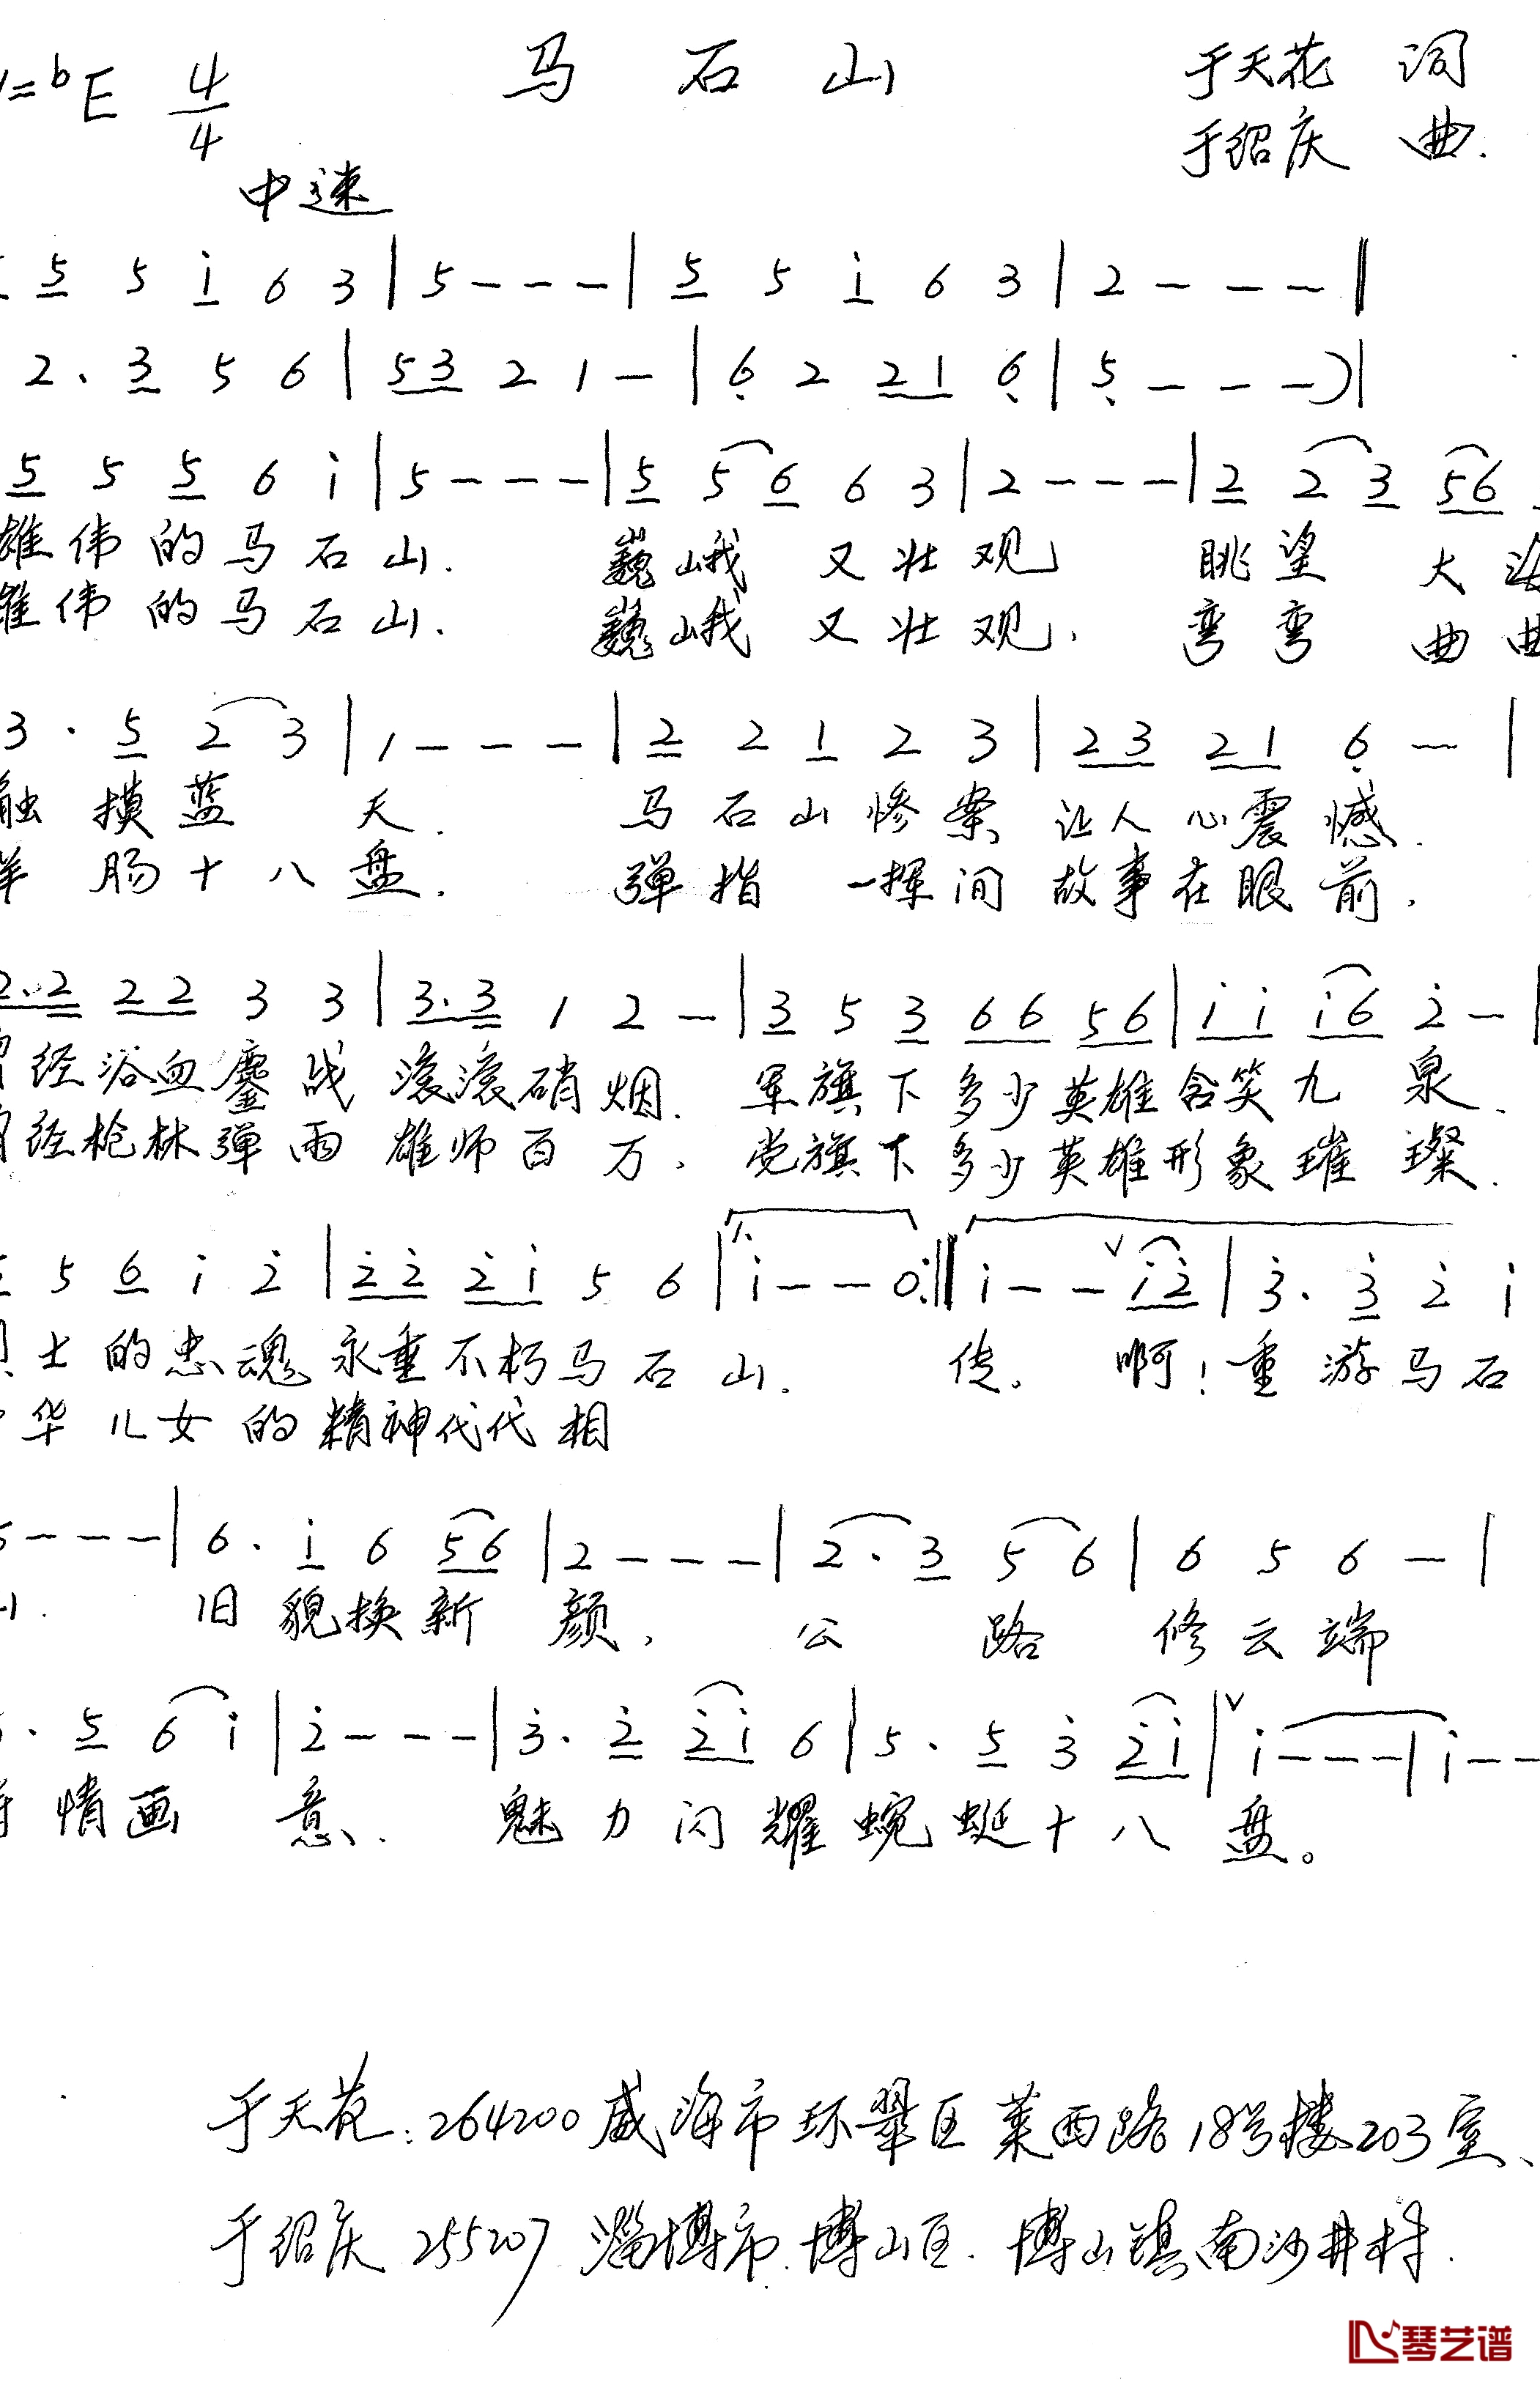 1=bE 4/4 马石山 于天花 词
于绍庆 曲.
中速
5 5 i 6 3 | 5 - - - | 5 5 i 6 3 | 2 - - - ‖
2. 3 5 6 | 53 2 1 - | 6 2 21 6 | 5 - - - ) |
5 5 5 6 i | 5 - - - | 5 5 6 6 3 | 2 - - - | 2 2 3 56
雄伟的马石山. 巍峨又壮观 眺望大海
雄伟的马石山. 巍峨又壮观. 弯弯曲曲
3. 5 2 3 | 1 - - - | 2 2 1 2 3 | 23 21 6 - |
触摸蓝天. 马石山惨案 让人心震憾.
羊肠十八盘. 弹指一挥间 故事在眼前.
2.2 22 3 3 | 3.3 1 2 - | 3 5 3 66 56 | i i i6 2 - |
经浴血鏖战 滚滚硝烟. 军旗下多少英雄含笑九泉.
曾经枪林弹雨 雄师百万. 党旗下多少英雄形象璀璨.
5 6 i 2 | 22 2i 5 6 | 1. i - - 0 :‖ i - - v i2 | 3. 3 2 i
士的忠魂永垂不朽马石山. 传. 啊! 重游马石
华儿女的精神代代相
5 - - - | 6. i 6 56 | 2 - - - | 2. 3 5 6 | 6 5 6 - |
山. 旧貌换新颜, 公路修云端
. 5 6 i | 2 - - - | 3. 2 2i 6 | 5. 5 3 2i | v i - - - | i - -
情画意. 魅力闪耀蜿蜒十八盘。
于天花: 264200 威海市环翠区莱西路18号楼203室、
于绍庆 255207 淄博市.博山区.博山镇南沙井村.
琴艺谱